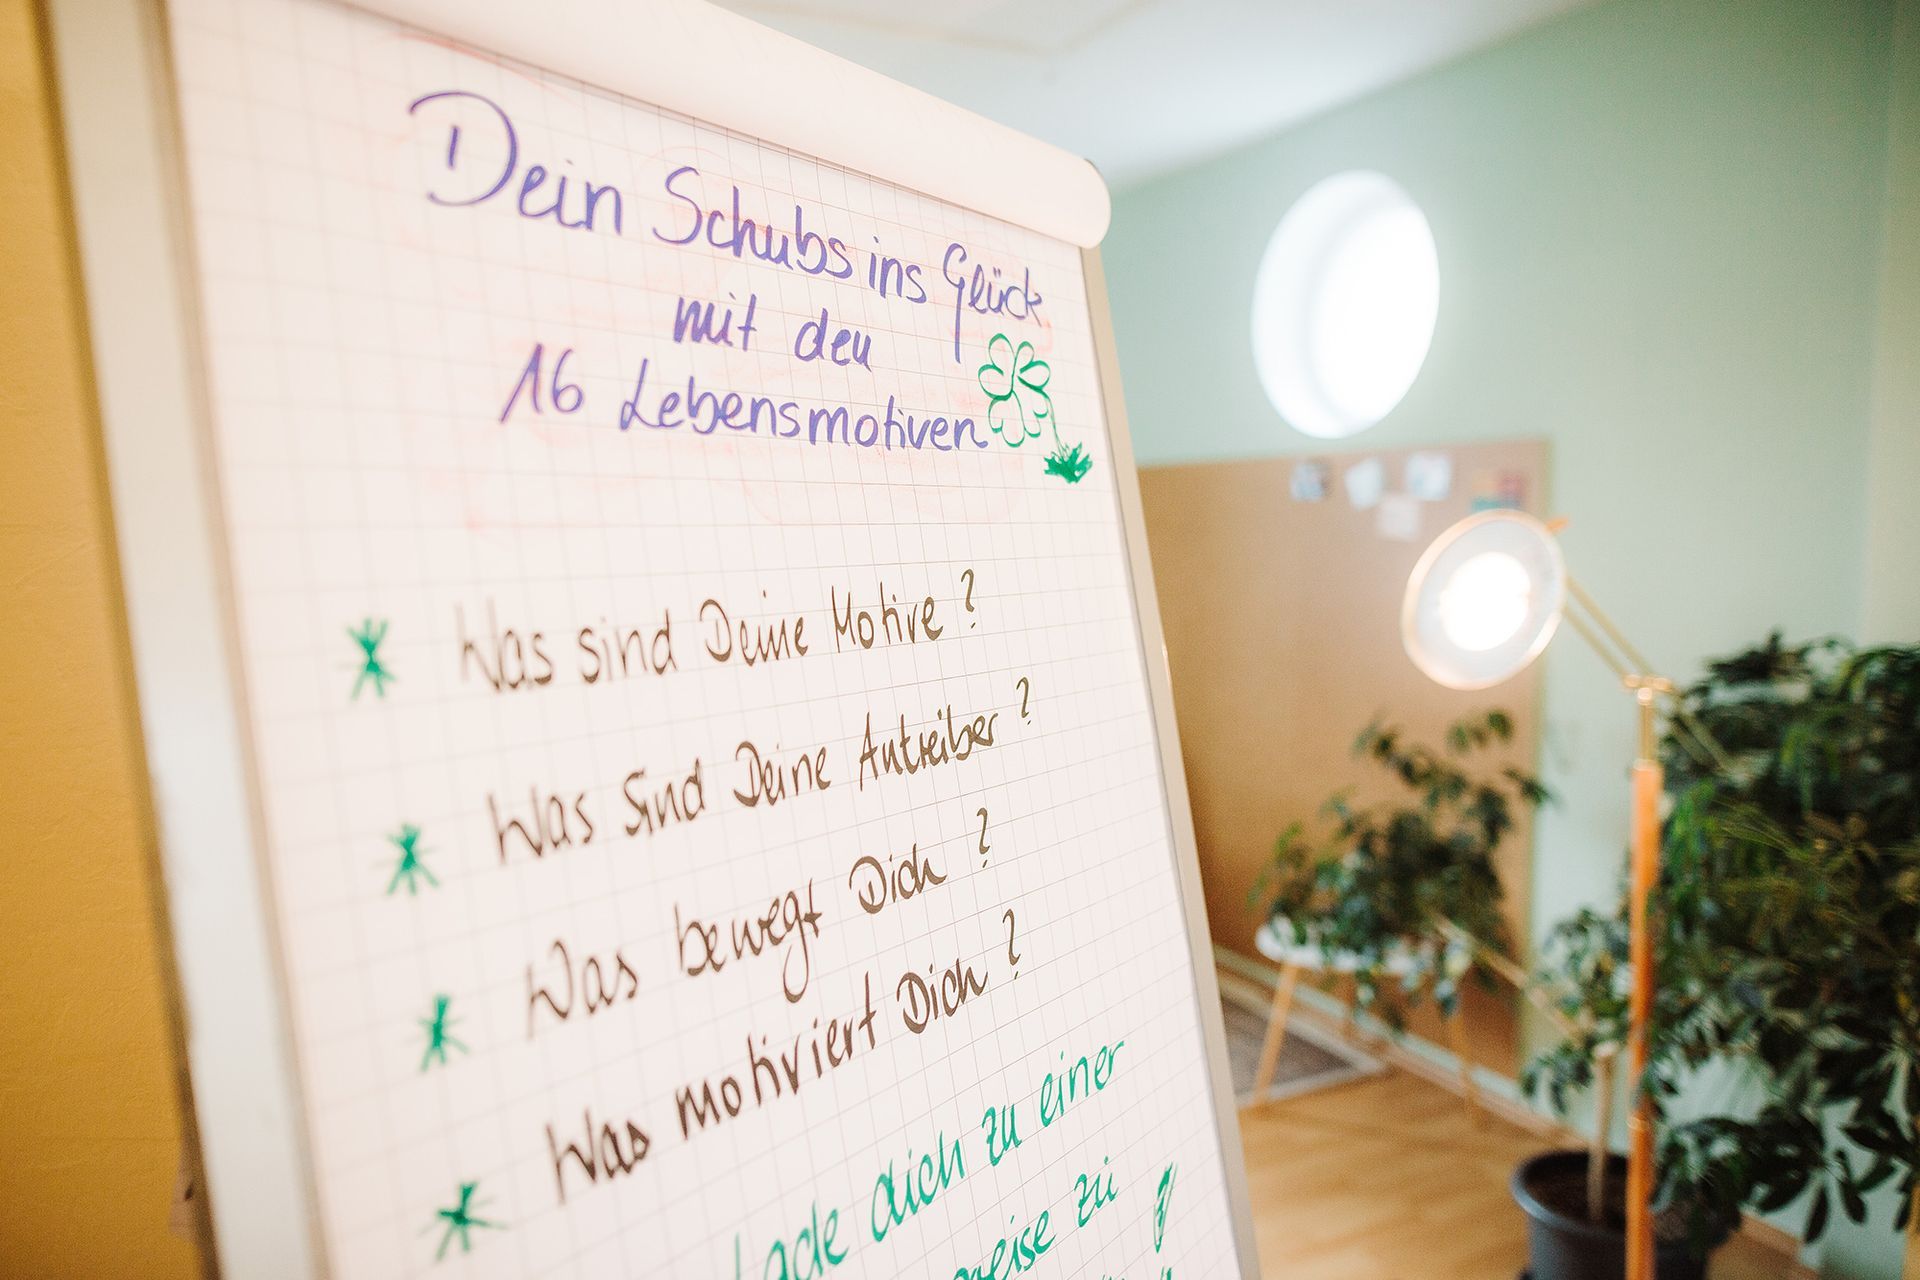 Dein Schubs ins Glück
mit den
16 Lebensmotiven
Was sind Deine Motive?
Was sind Deine Antreiber?
Was bewegt Dich?
Was motiviert Dich?
lade dich zu einer
zu